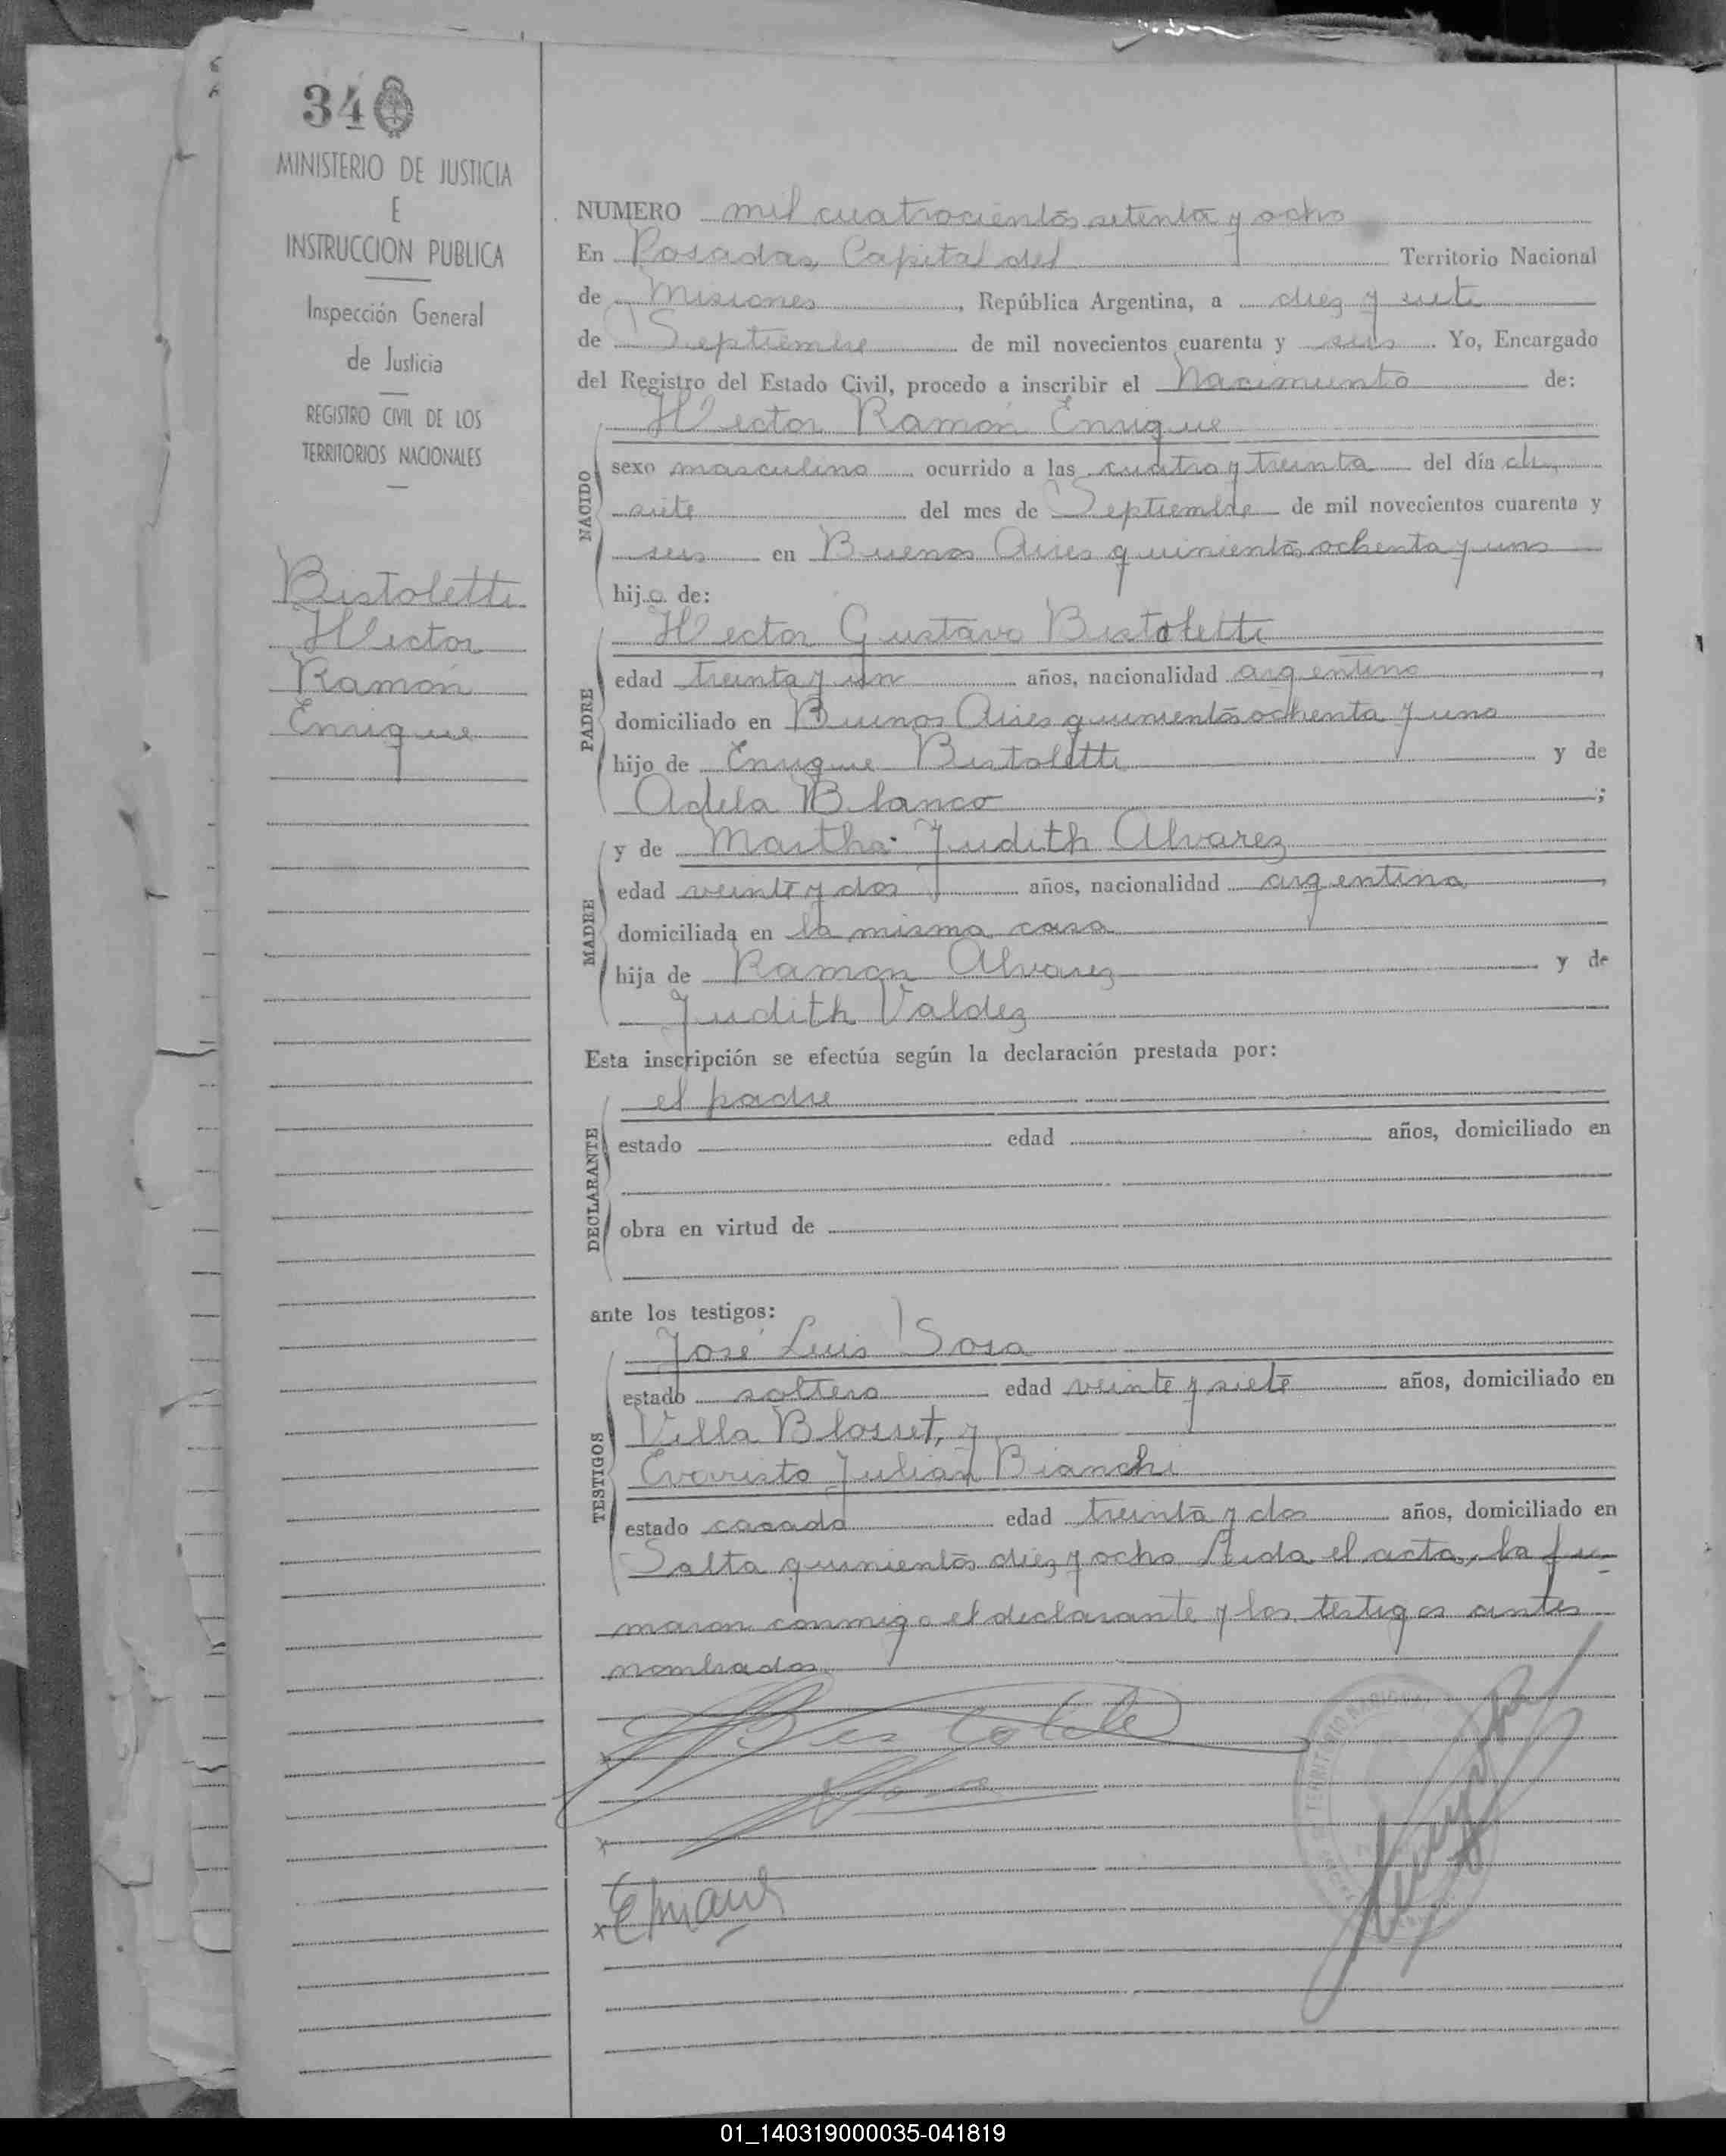 34
MINISTERIO DE JUSTICIA
E
INSTRUCCION PUBLICA
Inspección General
de Justicia
REGISTRO CIVIL DE LOS
TERRITORIOS NACIONALES
Bistoletti
Hector
Ramón
Enrique
NUMERO mil cuatrocientos setenta y ocho
En Posadas, Capital del Territorio Nacional
de Misiones, República Argentina, a diez y siete
de Septiembre de mil novecientos cuarenta y seis. Yo, Encargado
del Registro del Estado Civil, procedo a inscribir el Nacimiento de:
NACIDO
Hector Ramón Enrique
sexo masculino ocurrido a las cuatro y treinta del día
siete del mes de Septiembre de mil novecientos cuarenta y
seis en Buenos Aires quinientos ochenta y uno
hijo de:
PADRE
Hector Gustavo Bistoletti
edad treinta y un años, nacionalidad argentino,
domiciliado en Buenos Aires quinientos ochenta y uno
hijo de Enrique Bistoletti y de
Adela Blanco;
MADRE
y de Martha Judith Alvarez
edad veinte y dos años, nacionalidad argentina,
domiciliada en la misma casa
hija de Ramon Alvarez y de
Judith Valdez
Esta inscripción se efectúa según la declaración prestada por:
DECLARANTE
el padre
estado edad años, domiciliado en
obra en virtud de
ante los testigos:
TESTIGOS
José Luis Sosa
estado soltero edad veinte y siete años, domiciliado en
Villa Blosset, y
Evaristo Julian Bianchi
estado casado edad treinta y dos años, domiciliado en
Salta quinientos diez y ocho Leida el acta, la fir-
maron conmigo el declarante y los testigos antes
nombrados
01_140319000035-041819